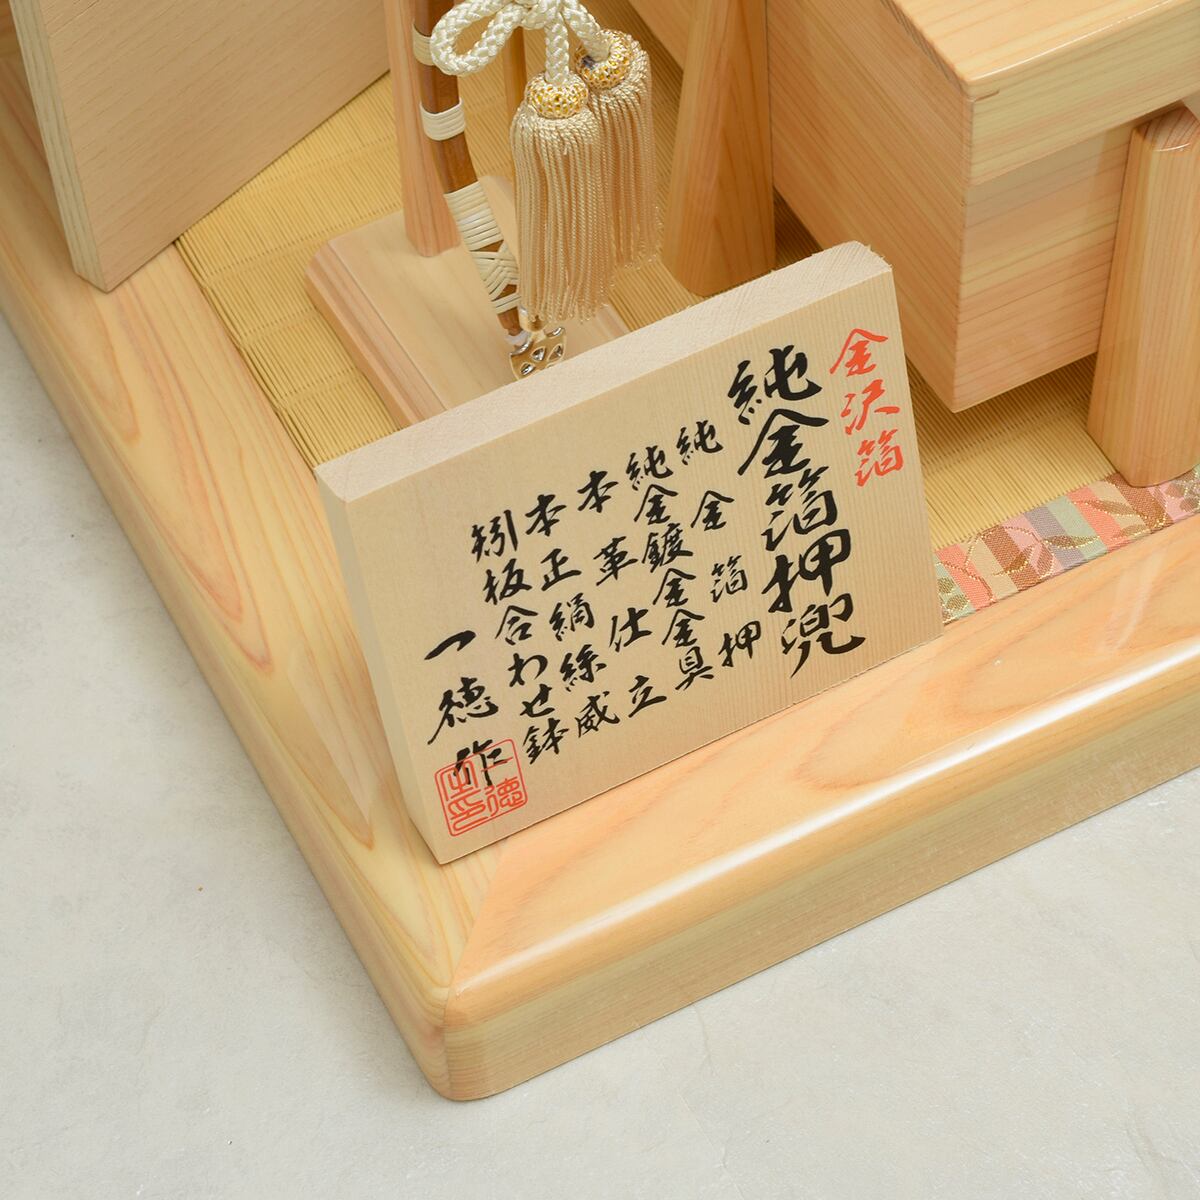 金沢箔
純金箔押兜
純金箔押
純金鍍金金具
本革仕立
本正絹糸威
矧板合わせ鉢
一徳作
一徳之印